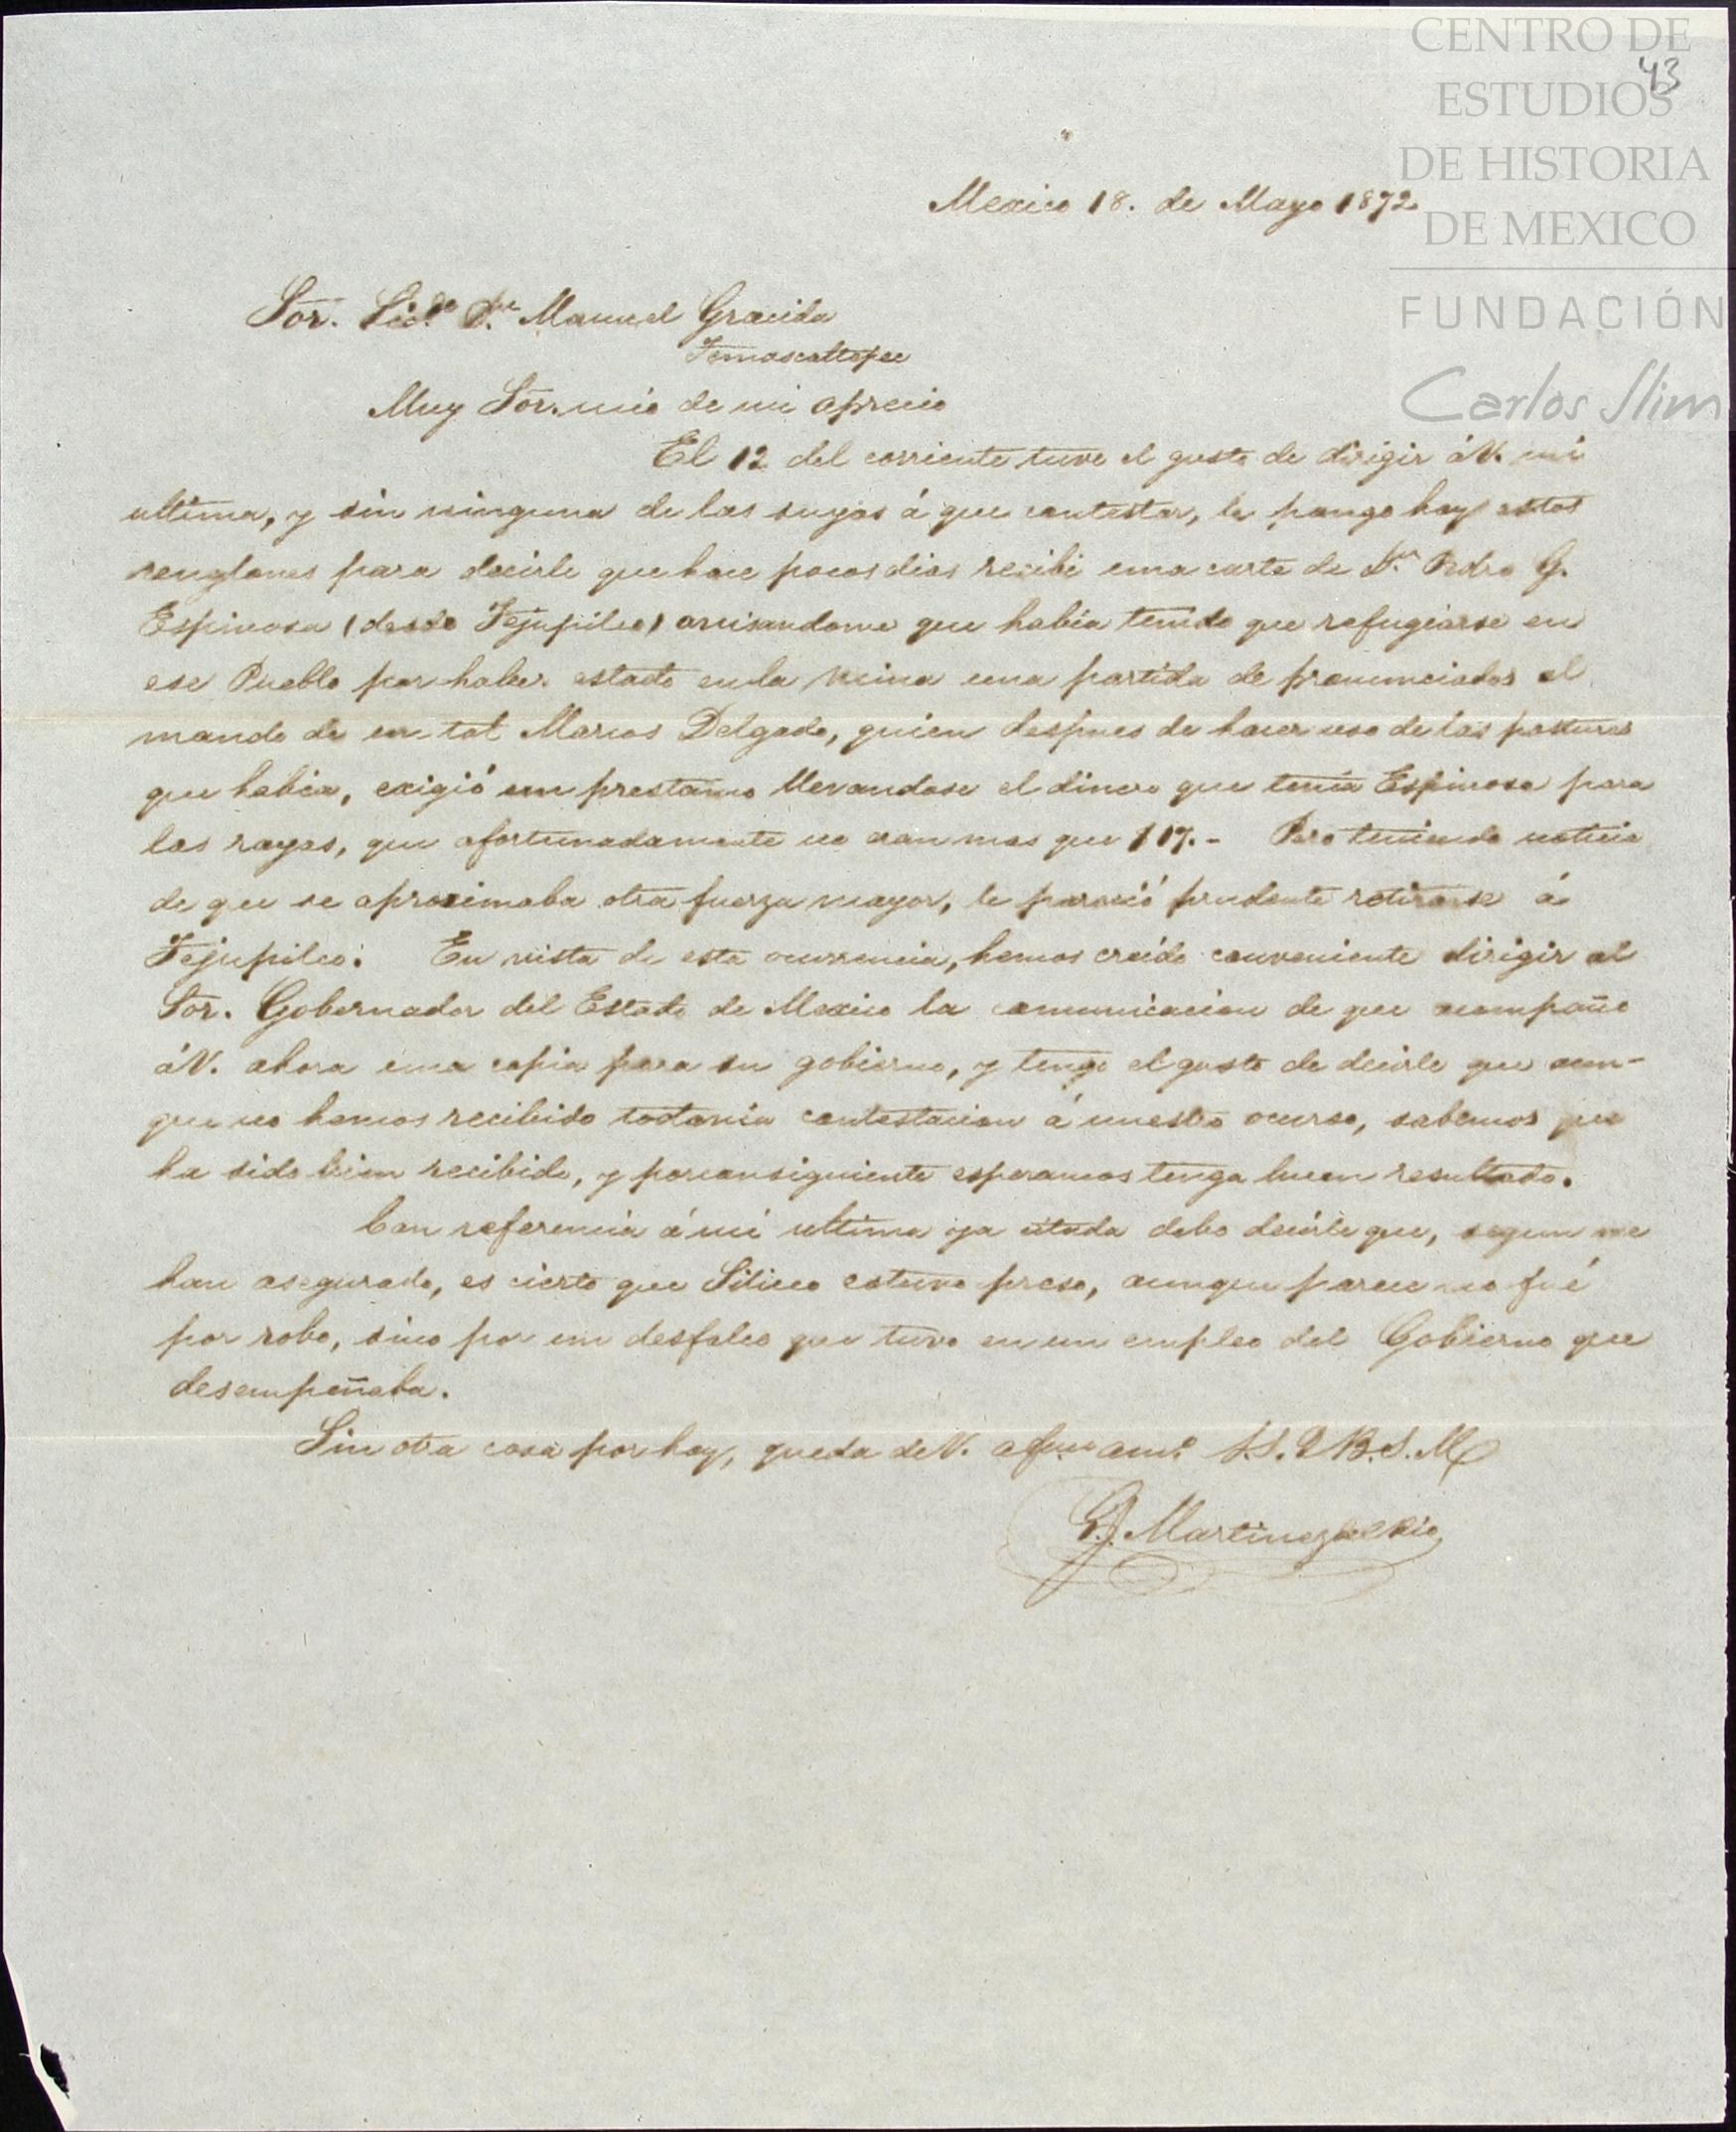 CENTRO DE
43
ESTUDIOS
DE HISTORIA
DE MEXICO
FUNDACIÓN
Carlos Slim
Mexico 18. de Mayo 1872
Sor. Licdo. Dn. Manuel Gracida
Temascaltepec
Muy Sor. mio de mi aprecio
El 12 del corriente tuve el gusto de dirigir á V. mi
ultima, y sin ninguna de las suyas á que contestar, le pongo hoy estos
renglones para decirle que hace pocos dias recibi una carta de Dn. Pedro G.
Espinosa (desde Tejupilco) avisandome que habia tenido que refugiarse en
ese Pueblo por haber estado en la mina una partida de pronunciados al
mando de un tal Marcos Delgado, quien despues de hacer uso de las pasturas
que habia, exigió un prestamo llevandose el dinero que tenia Espinosa para
las rayas, que afortunadamente no eran mas que $17.- Pero teniendo noticia
de que se aproximaba otra fuerza mayor, le pareció prudente retirarse á
Tejupilco. En vista de esta ocurrencia, hemos creido conveniente dirigir al
Sor. Gobernador del Estado de Mexico la comunicacion de que acompaño
á V. ahora una copia para su gobierno, y tengo el gusto de decirle que aun-
que no hemos recibido todavia contestacion á nuestro ocurso, sabemos que
ha sido bien recibido, y por consiguiente esperamos tenga buen resultado.
Con referencia á mi ultima ya citada debo decirle que, segun me
han asegurado, es cierto que Siliceo estuvo preso, aunque parece no fué
por robo, sino por un desfalco que tuvo en un empleo del Gobierno que
desempeñaba.
Sin otra cosa por hoy, queda de V. afmo. amo. S.S.Q.B.S.M.
G. Martinez del Rio